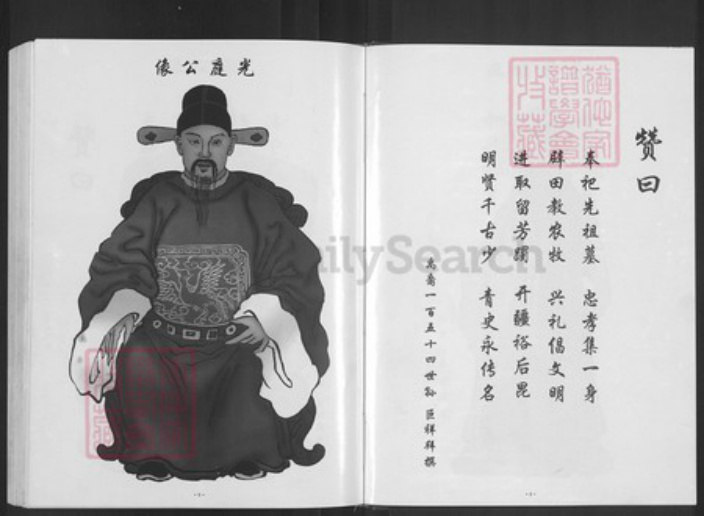 光庭公像
赞曰
奉祀先祖墓 忠孝集一身
辟田教农牧 兴礼倡文明
进取留芳躅 开疆裕后昆
明贤千古少 青史永传名
禹裔一百五十四世孙 臣祥拜撰
犹他家谱学会收藏
FamilySearch